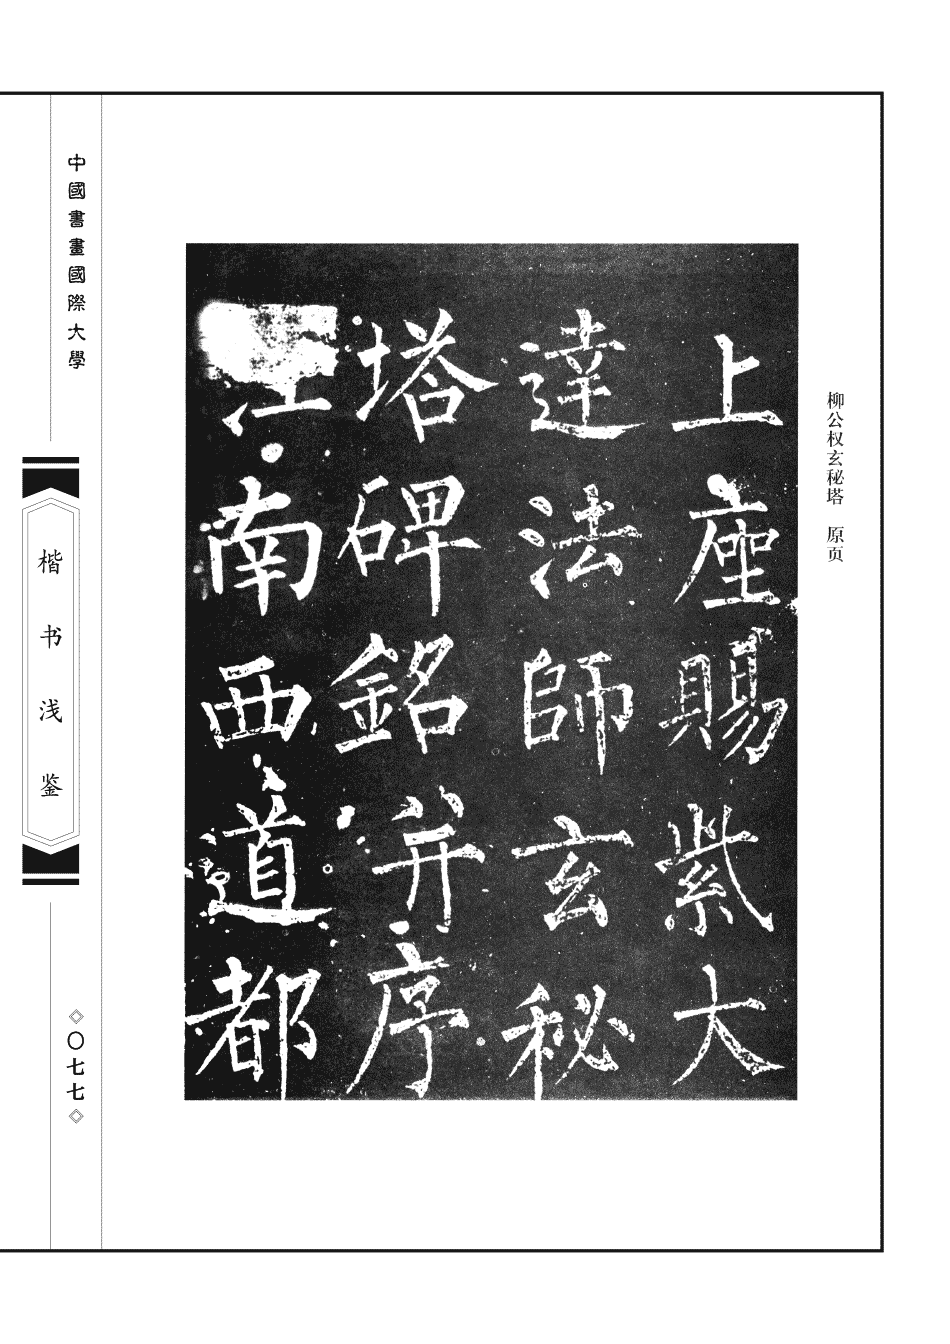 柳公权玄秘塔 原页
上座賜紫大
達法師玄秘
塔碑銘并序
江南西道都
中國書畫國際大學
楷书浅鉴
〇七七